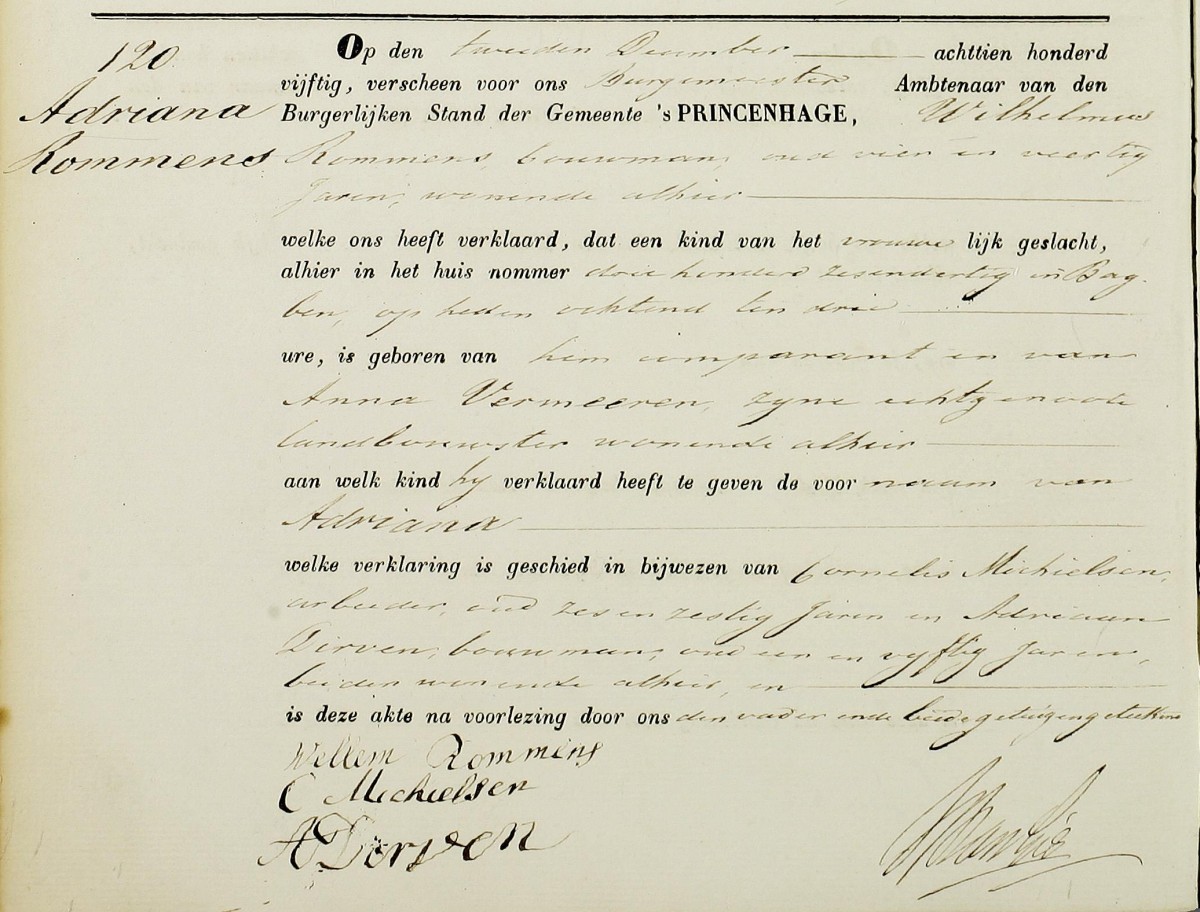 120
Adriana
Rommens
Op den tweeden December achttien honderd
vijftig, verscheen voor ons Burgemeester Ambtenaar van den
Burgerlijken Stand der Gemeente 's PRINCENHAGE, Wilhelmus
Rommens, bouwman, oud vier en veertig
Jaren, wonende alhier
welke ons heeft verklaard, dat een kind van het vrouwe lijk geslacht,
alhier in het huis nommer drie honderd zesendertig in Bag
ben, op heden ochtend ten drie
ure, is geboren van hem comparant en van
Anna Vermeeren, zyne echtgenoote
landbouwster wonende alhier
aan welk kind hy verklaard heeft te geven de voor naam van
Adriana
welke verklaring is geschied in bijwezen van Cornelis Michielsen,
arbeider, oud zes en zestig Jaren en Adriaan
Dirven, bouwman, oud een en vyftig Jaren,
beiden wonende alhier, en
is deze akte na voorlezing door ons den vader ende beide getuigen geteekend
Willem Rommens
C Michielsen
A Dirven